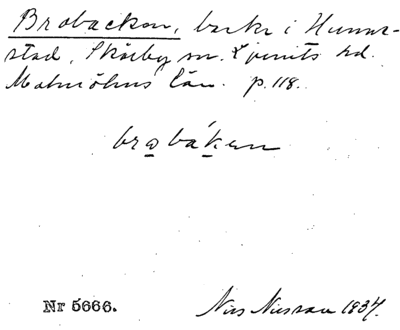 Brobacken, backe i Hunne-
stad, Skårby sn. Ljunits hd.
Malmöhus län. p. 118.
brobáken
Nr 5666.
Nils Nilsson 1934.